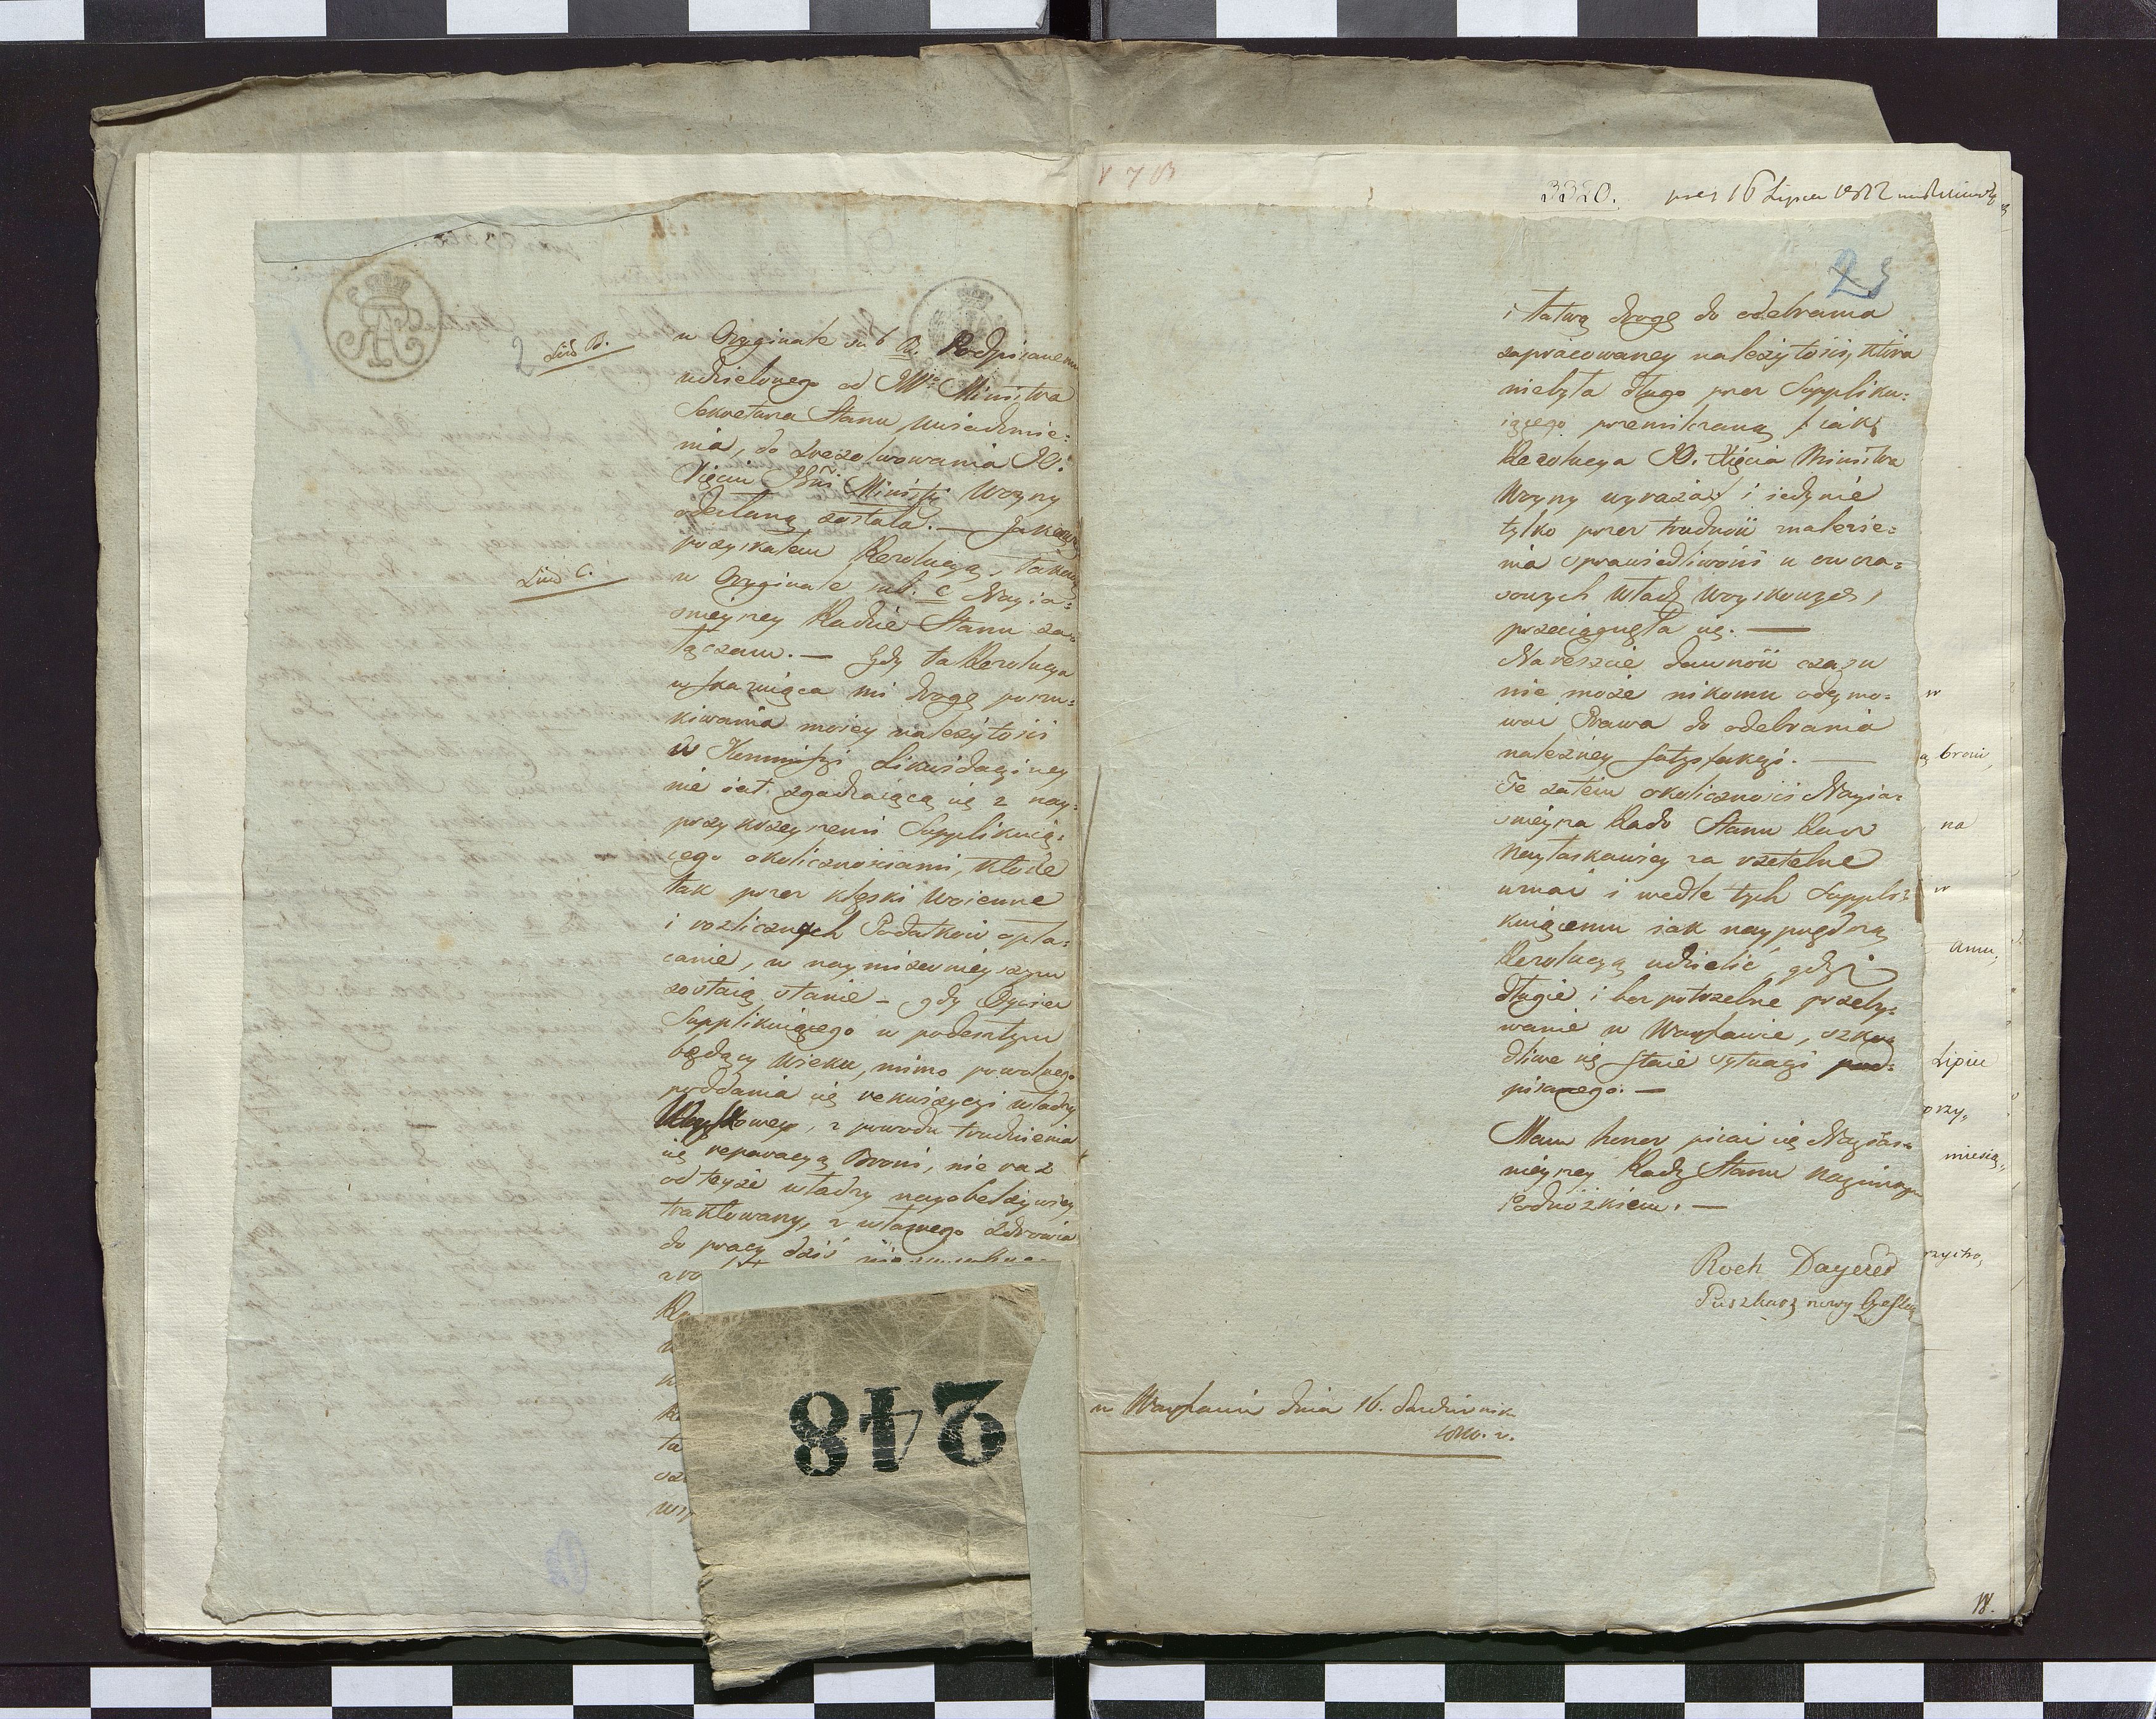 2
Lit. B.
w Oryginale sub B. Podpisanemu
udzielonego od JW° Ministra
Sekretarza Stanu uwiadomie:
nia, do zrezolwowania JO.
Xięciu Jmci Ministr Woyny
odesłaną została. — Jakową
pozyskałem Rezolucyą, takową
Lit. C.
w Oryginale sub. C Nayia:
śnieyszey Radzie Stanu za:
łączam. — Gdy ta Rezolucya
wskazuiąca mi drogę poszu:
kiwania moiey należytości
w Kommissyi Likwidacyiney
nie iest zgadzaiącą się z nay:
przykrzeyszemi Supplikuią:
cego okolicznościami, które
tak przez klęski woienne
i rozlicznych Podatków opła:
canie, w naymizernieyszym
zostaią stanie – gdy Oyciec
Supplikuiącego w podeszłym
będący wieku, mimo powolnego
poddania się rekwizycyi władzy
Woyskowey, z powodu trudnienia
się reparacyą Broni, nie raz
od teyże władzy nayobelżywiey
traktowany, z własnego zdrowia
do pracy dziś
248
178
3320. prez 16 Lipca 1812
23
i łatwą drogę do odebrania
zapracowaney należytości, która
niebyła długo przez Suppliku:
iącego przemilczaną /: iak
Rezolucya JO. Xięcia Ministra
Woyny wyraża :/ i iedynie
tylko przez trudność znalezie:
nia sprawiedliwości u owcza:
sowych Władz Woyskowych,
przeciągnęła się. —
Nareszcie dawność czasu
nie może nikomu odeymo:
wać Prawa do odebrania
należney satysfakcyi. —
Te zatem okoliczności Nayia:
śnieysza Rado Stanu Racz
Nayłaskawiey za rzetelne
uznać i wedle tych Suppli:
kuiącemu iak nayprędszą
Rezolucyą udzielić, gdyż
długie i bez potrzebne przeby:
wanie w Warszawie, szko
dliwe się staie sytuacyi pod:
pisanego. —
Mam honor pisać się Nayiaś:
nieyszey Rady Stanu nayniższym
Podnóżkiem. —
Roch Dayered
Puszkarz
w Warszawie dnia 16. Październik
1810. r.
w
broni,
na
w
Lipiu
przy,,
miesią,,
18.